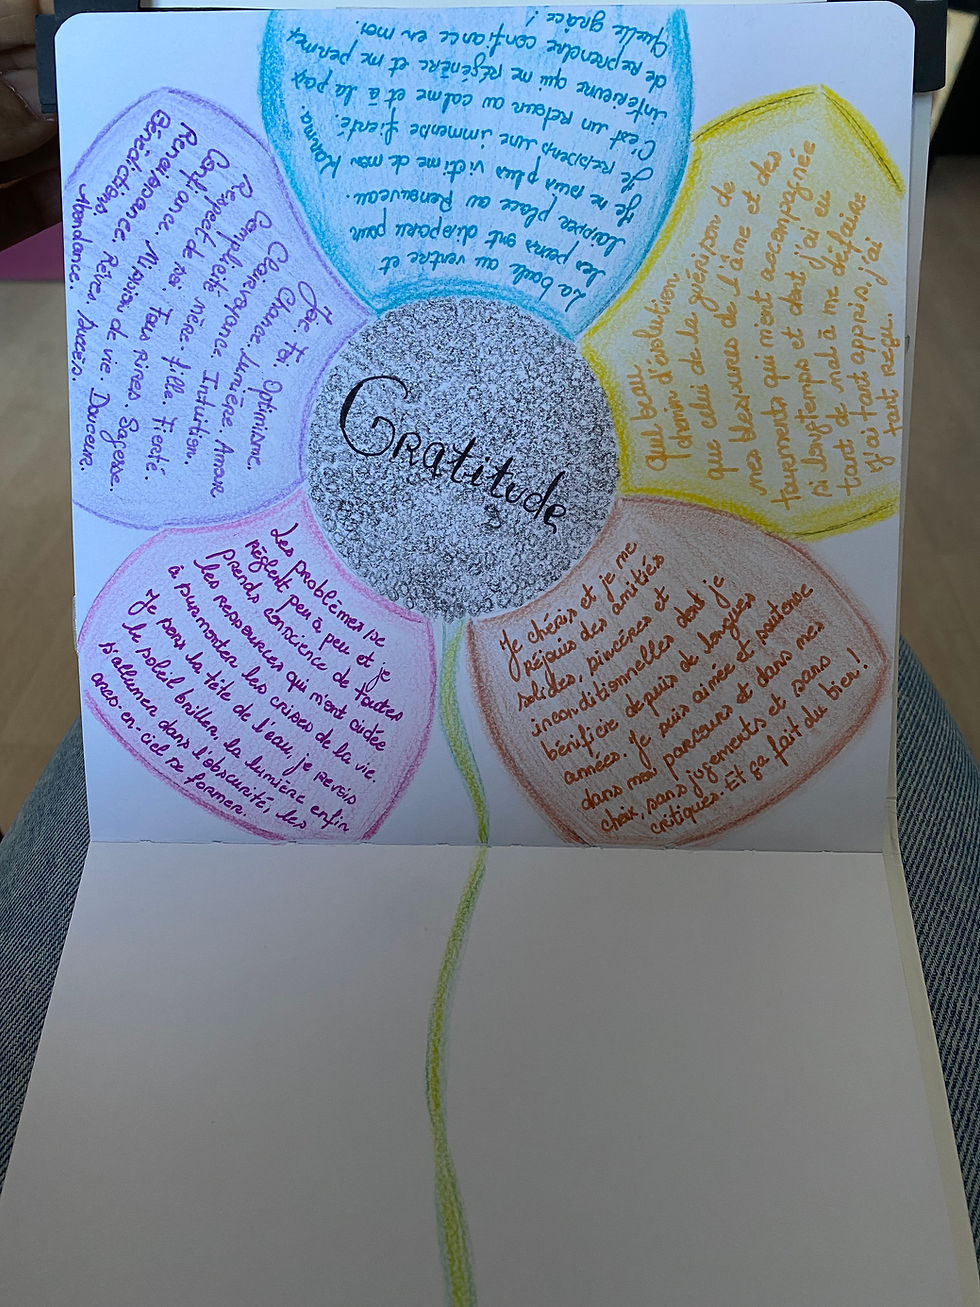 Gratitude
La boule au ventre et
les peurs ont disparu pour
laisser place au Renouveau.
Je ne suis plus victime de mon Karma.
Je ressens une immense fierté.
C'est un retour au calme et à la paix
intérieure qui me régénère et me permet
de reprendre confiance en moi.
Quelle grâce !
Quel beau
chemin d'évolution
que celui de la guérison de
mes blessures de l'âme et des
tourments qui m'ont accompagnée
si longtemps et dont j'ai eu
tant de mal à me défaire
j'ai tant appris, j'ai
tant reçu.
Je chéris et je me
réjouis des amitiés
solides, sincères et
inconditionnelles dont je
bénéficie depuis de longues
années. Je suis aimée et soutenue
dans mon parcours et dans mes
choix, sans jugements et sans
critiques. Et ça fait du bien !
Les problèmes se
règlent peu à peu et je
prends conscience de toutes
les ressources qui m'ont aidée
à surmonter les crises de la vie.
Je sors la tête de l'eau, je revois
le soleil briller, la lumière enfin
s'allumer dans l'obscurité, les
arcs-en-ciel se former.
Joie. Foi. Optimisme.
Chance. Lumière. Amour
Clairvoyance. Intuition.
Complicité mère-fille. Fierté.
Respect de soi. Fous rires. Sagesse.
Confiance. Mission de vie. Douceur.
Renaissance. Rêves. Succès.
Bénédictions.
Abondance.